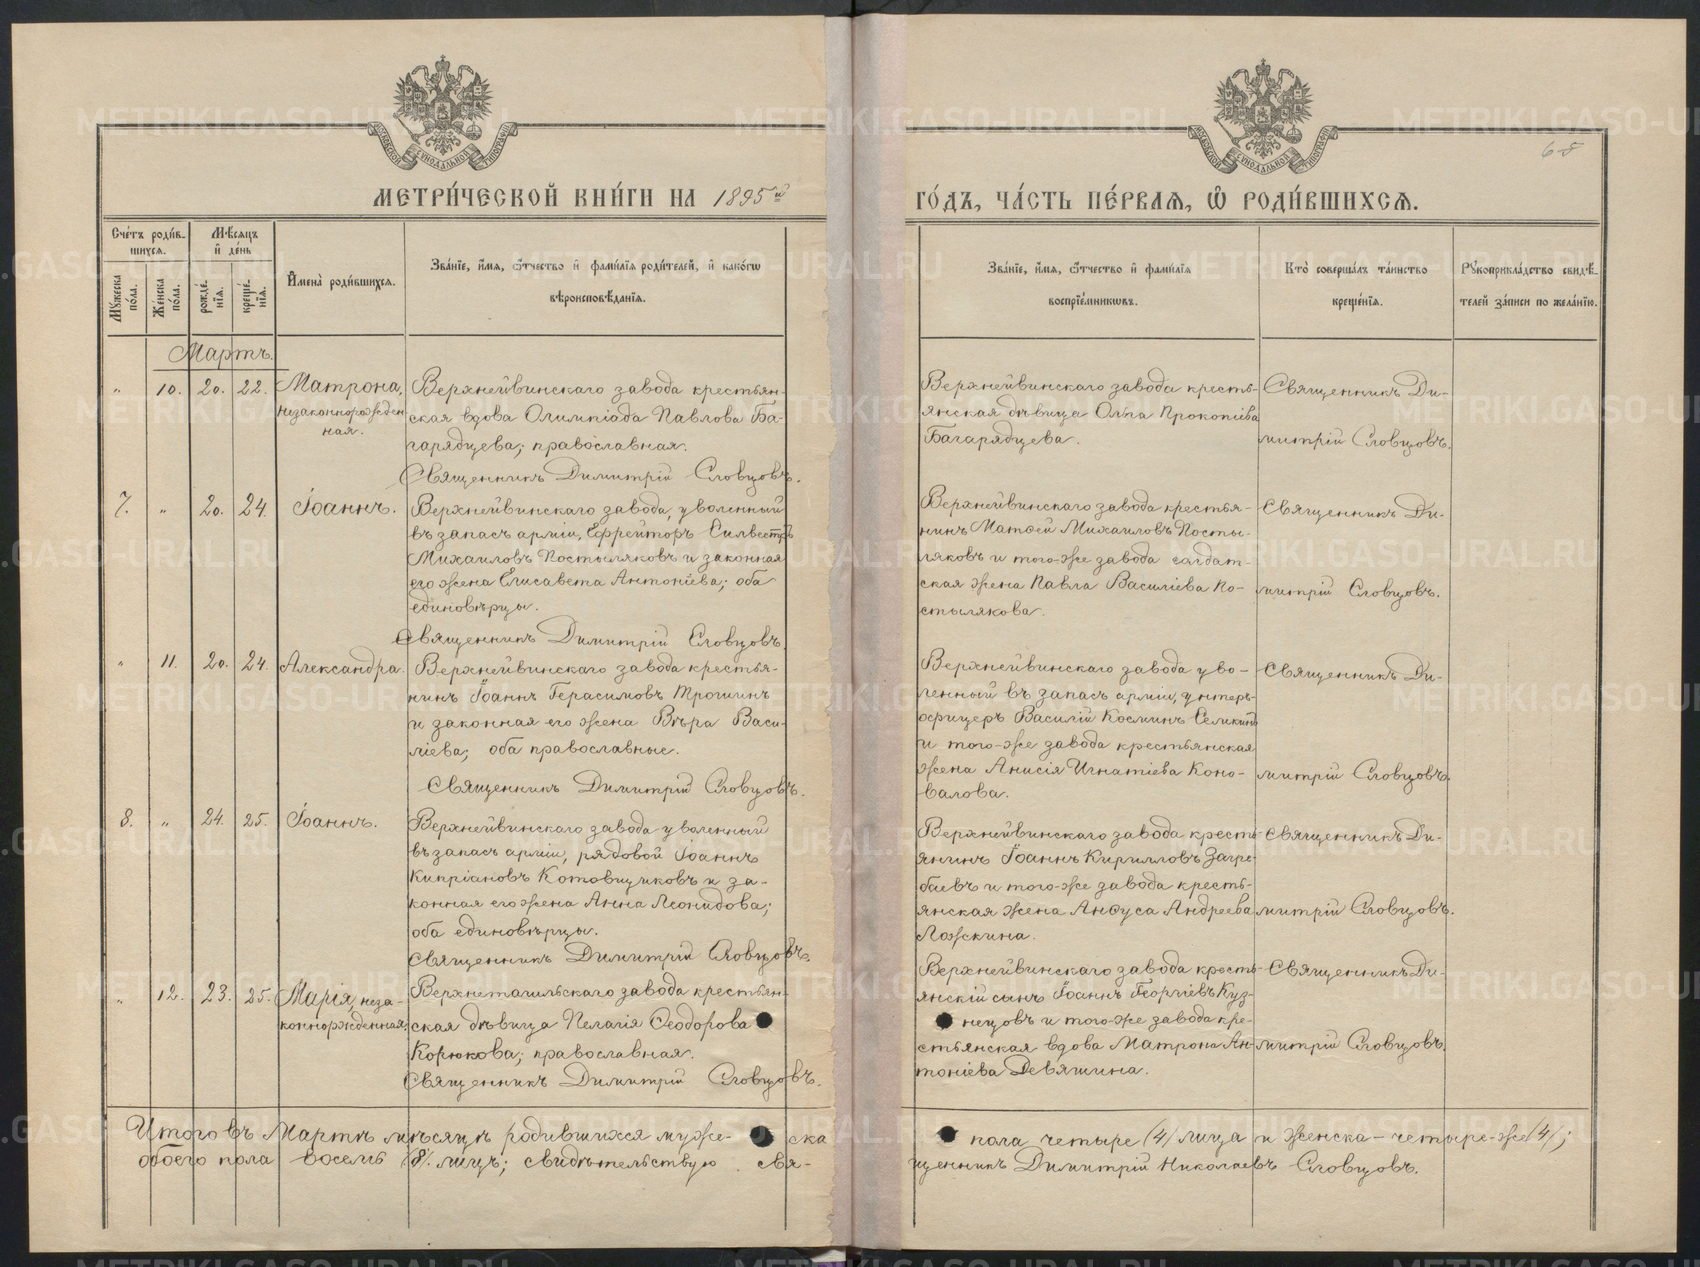 МОСКОВСКОЙ СѴНОДАЛЬНОЙ ТИПОГРАФІИ
МОСКОВСКОЙ СѴНОДАЛЬНОЙ ТИПОГРАФІИ
65
МЕТРИ́ЧЕСКОЙ КНИ́ГИ НА 1895й
ГО́ДЪ, ЧА́СТЬ ПЕ́РВАѦ, Ѡ҆ РОДИ́ВШИХСѦ.
Сче́тъ роди́в-
шихсѧ.
Мѣ́сѧцъ
и҆ де́нь
Мꙋ́жеска
по́ла.
Же́нска
по́ла.
рожде́-
нїѧ.
креще́-
нїѧ.
И҆мена̀ роди́вшихсѧ.
Зва́нїе, и҆́мѧ, ѻ҆́тчество и҆ фами́лїѧ роди́телей, и҆ како́гѡ
вѣроисповѣ́данїѧ.
Зва́нїе, и҆́мѧ, ѻ҆́тчество и҆ фами́лїѧ
воспрїе́мникѡвъ.
Кто̀ соверша́лъ та́инство
креще́нїѧ.
Рꙋкоприкла́дство свидѣ́-
телей за́писи по жела́нїю.
Мартъ.
" 10. 20. 22. Матрона,
незаконнорожден
ная.
Верхнейвинскаго завода крестьян-
ская вдова Олимпіада Павлова Ба-
гарядцева; православная.
Священникъ Димитрій Словцовъ.
Верхнейвинскаго завода кресть-
янская дѣвица Ольга Прокопіева
Багарядцева.
Священникъ Ди-
митрій Словцовъ.
7. " 20. 24. Іоаннъ.
Верхнейвинскаго завода, уволенный
въ запасъ арміи, Ефрейторъ Сильвестръ
Михаиловъ Постыляковъ и законная
его жена Елисавета Антоніева; оба
единовѣрцы.
Священникъ Димитрій Словцовъ.
Верхнейвинскаго завода крестья-
нинъ Матѳей Михаиловъ Посты-
ляковъ и того-же завода солдат-
ская жена Павла Василіева По-
стылякова.
Священникъ Ди-
митрій Словцовъ.
" 11. 20. 24. Александра.
Верхнейвинскаго завода крестья-
нинъ Іоаннъ Герасимовъ Трошинъ
и законная его жена Вѣра Васи-
ліева; оба православные.
Священникъ Димитрій Словцовъ.
Верхнейвинскаго завода уво-
ленный въ запасъ арміи, унтеръ-
офицеръ Василій Косминъ
и того-же завода крестьянская
жена Анисія Игнатіева Коно-
валова.
Священникъ Ди-
митрій Словцовъ.
8. " 24. 25. Іоаннъ.
Верхнейвинскаго завода уволенный
въ запасъ арміи, рядовой Іоаннъ
Кипріановъ Котовщиковъ и за-
конная его жена Анна Леонидова;
оба единовѣрцы.
Священникъ Димитрій Словцовъ.
Верхнейвинскаго завода кресть-
янинъ Іоаннъ Кирилловъ Загре-
баевъ и того-же завода кресть-
янская жена Анфуса Андреева
Ложкина.
Священникъ Ди-
митрій Словцовъ.
" 12. 23. 25. Марія, неза-
коннорожденная.
Верхнетагильскаго завода крестьян-
ская дѣвица Пелагія Ѳеодорова
Корюкова; православная.
Священникъ Димитрій Словцовъ.
Верхнейвинскаго завода кресть-
янскій сынъ Іоаннъ Георгіевъ Куз-
нецовъ и того-же завода кре-
стьянская вдова Матрона Ан-
тоніева Девяшина.
Священникъ Ди-
митрій Словцовъ.
Итого въ Мартѣ мѣсяцѣ родившихся муже- ска пола четыре (4) лица и женска - четыре-же (4);
обоего пола восемь (8) лицъ; свидѣтельствую свя- щенникъ Димитрій Николаевъ Словцовъ.